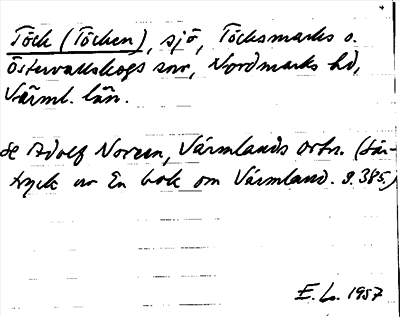 Töck (Töcken), sjö, Töcksmarks o.
Östervallskogs snr, Nordmarks hd,
Värml. län.
se Adolf Noreen, Värmlands ortn. (Sär-
tryck ur En bok om Värmland. s. 385.)
E. Lo. 1957